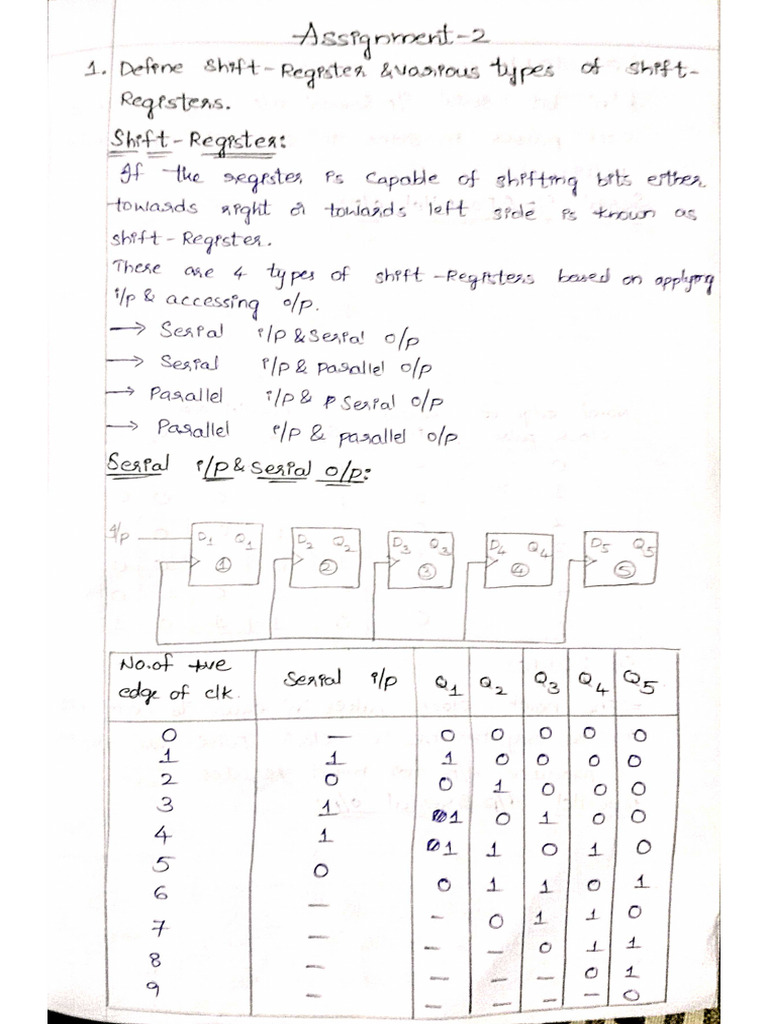 Assignment-2
1. Define Shift-Register & various types of shift-
Registers.
Shift-Register:
If the register is capable of shifting bits either
towards right or towards left side is known as
shift-Register.
There are 4 types of shift-Registers based on applying
i/p & accessing o/p.
→ Serial i/p & Serial o/p
→ Serial i/p & parallel o/p
→ Parallel i/p & serial o/p
→ Parallel i/p & parallel o/p
Serial i/p & serial o/p:
i/p D1 Q1 D2 Q2 D3 Q3 D4 Q4 D5 Q5
1 2 3 4 5
No.of +ve edge of clk. Serial i/p Q1 Q2 Q3 Q4 Q5
0 — 0 0 0 0 0
1 1 1 0 0 0 0
2 0 0 1 0 0 0
3 1 1 0 1 0 0
4 1 1 1 0 1 0
5 0 0 1 1 0 1
6 — - 0 1 1 0
7 — - - 0 1 1
8 — - - - 0 1
9 — - - - - 0